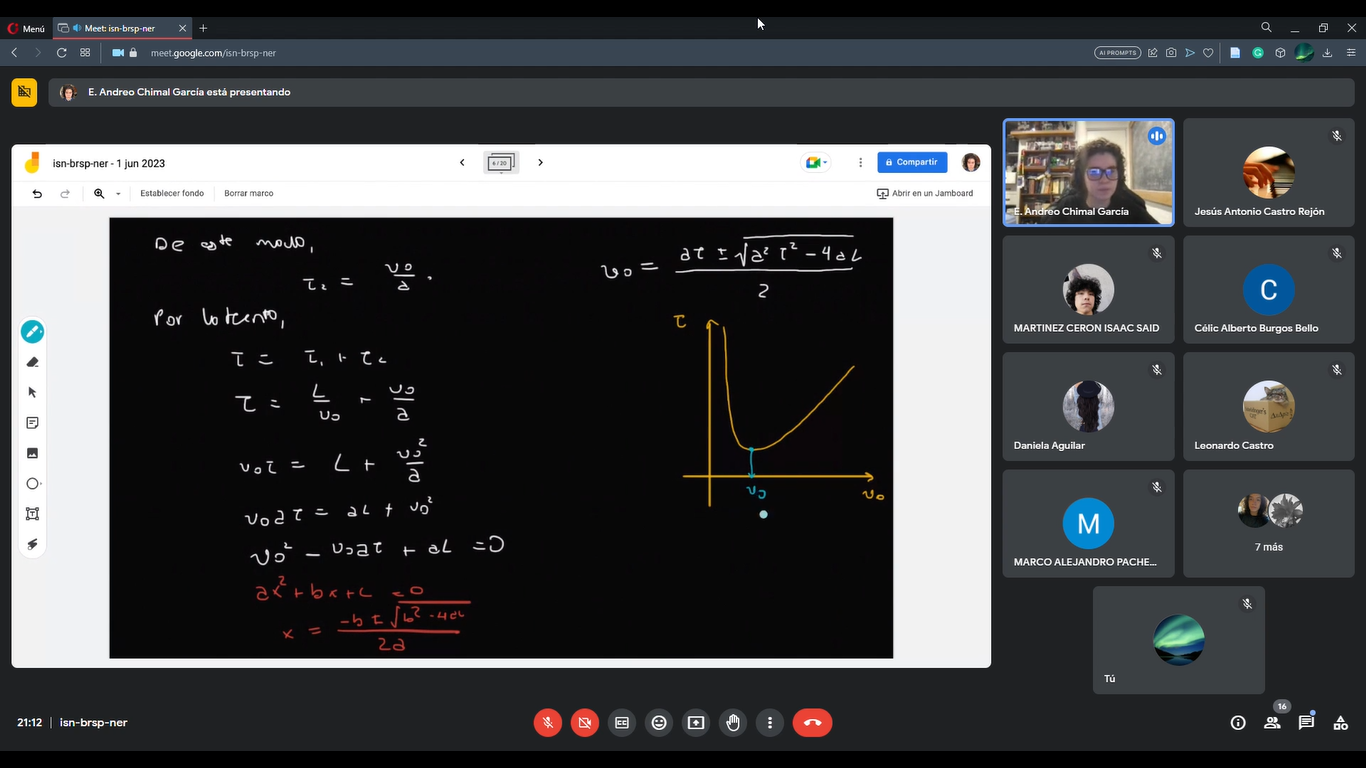 Menú
Meet: isn-brsp-ner
meet.google.com/isn-brsp-ner
AI PROMPTS
E. Andreo Chimal García está presentando
isn-brsp-ner - 1 jun 2023
6 / 20
Compartir
Establecer fondo
Borrar marco
Abrir en un Jamboard
De este modo,
τ₂ = v₀/a .
Por lo tanto,
τ = τ₁ + τ₂
τ = L/v₀ + v₀/a
v₀τ = L + v₀²/a
v₀aτ = aL + v₀²
v₀² - v₀aτ + aL = 0
ax² + bx + c = 0
x = (-b ± √(b² - 4ac))/2a
v₀ = (aτ ± √(a²τ² - 4aL))/2
τ
v₀
v₀
E. Andreo Chimal García
Jesús Antonio Castro Rejón
MARTINEZ CERON ISAAC SAID
C
Célic Alberto Burgos Bello
Daniela Aguilar
Leonardo Castro
M
MARCO ALEJANDRO PACHE...
7 más
Tú
21:12 | isn-brsp-ner
16